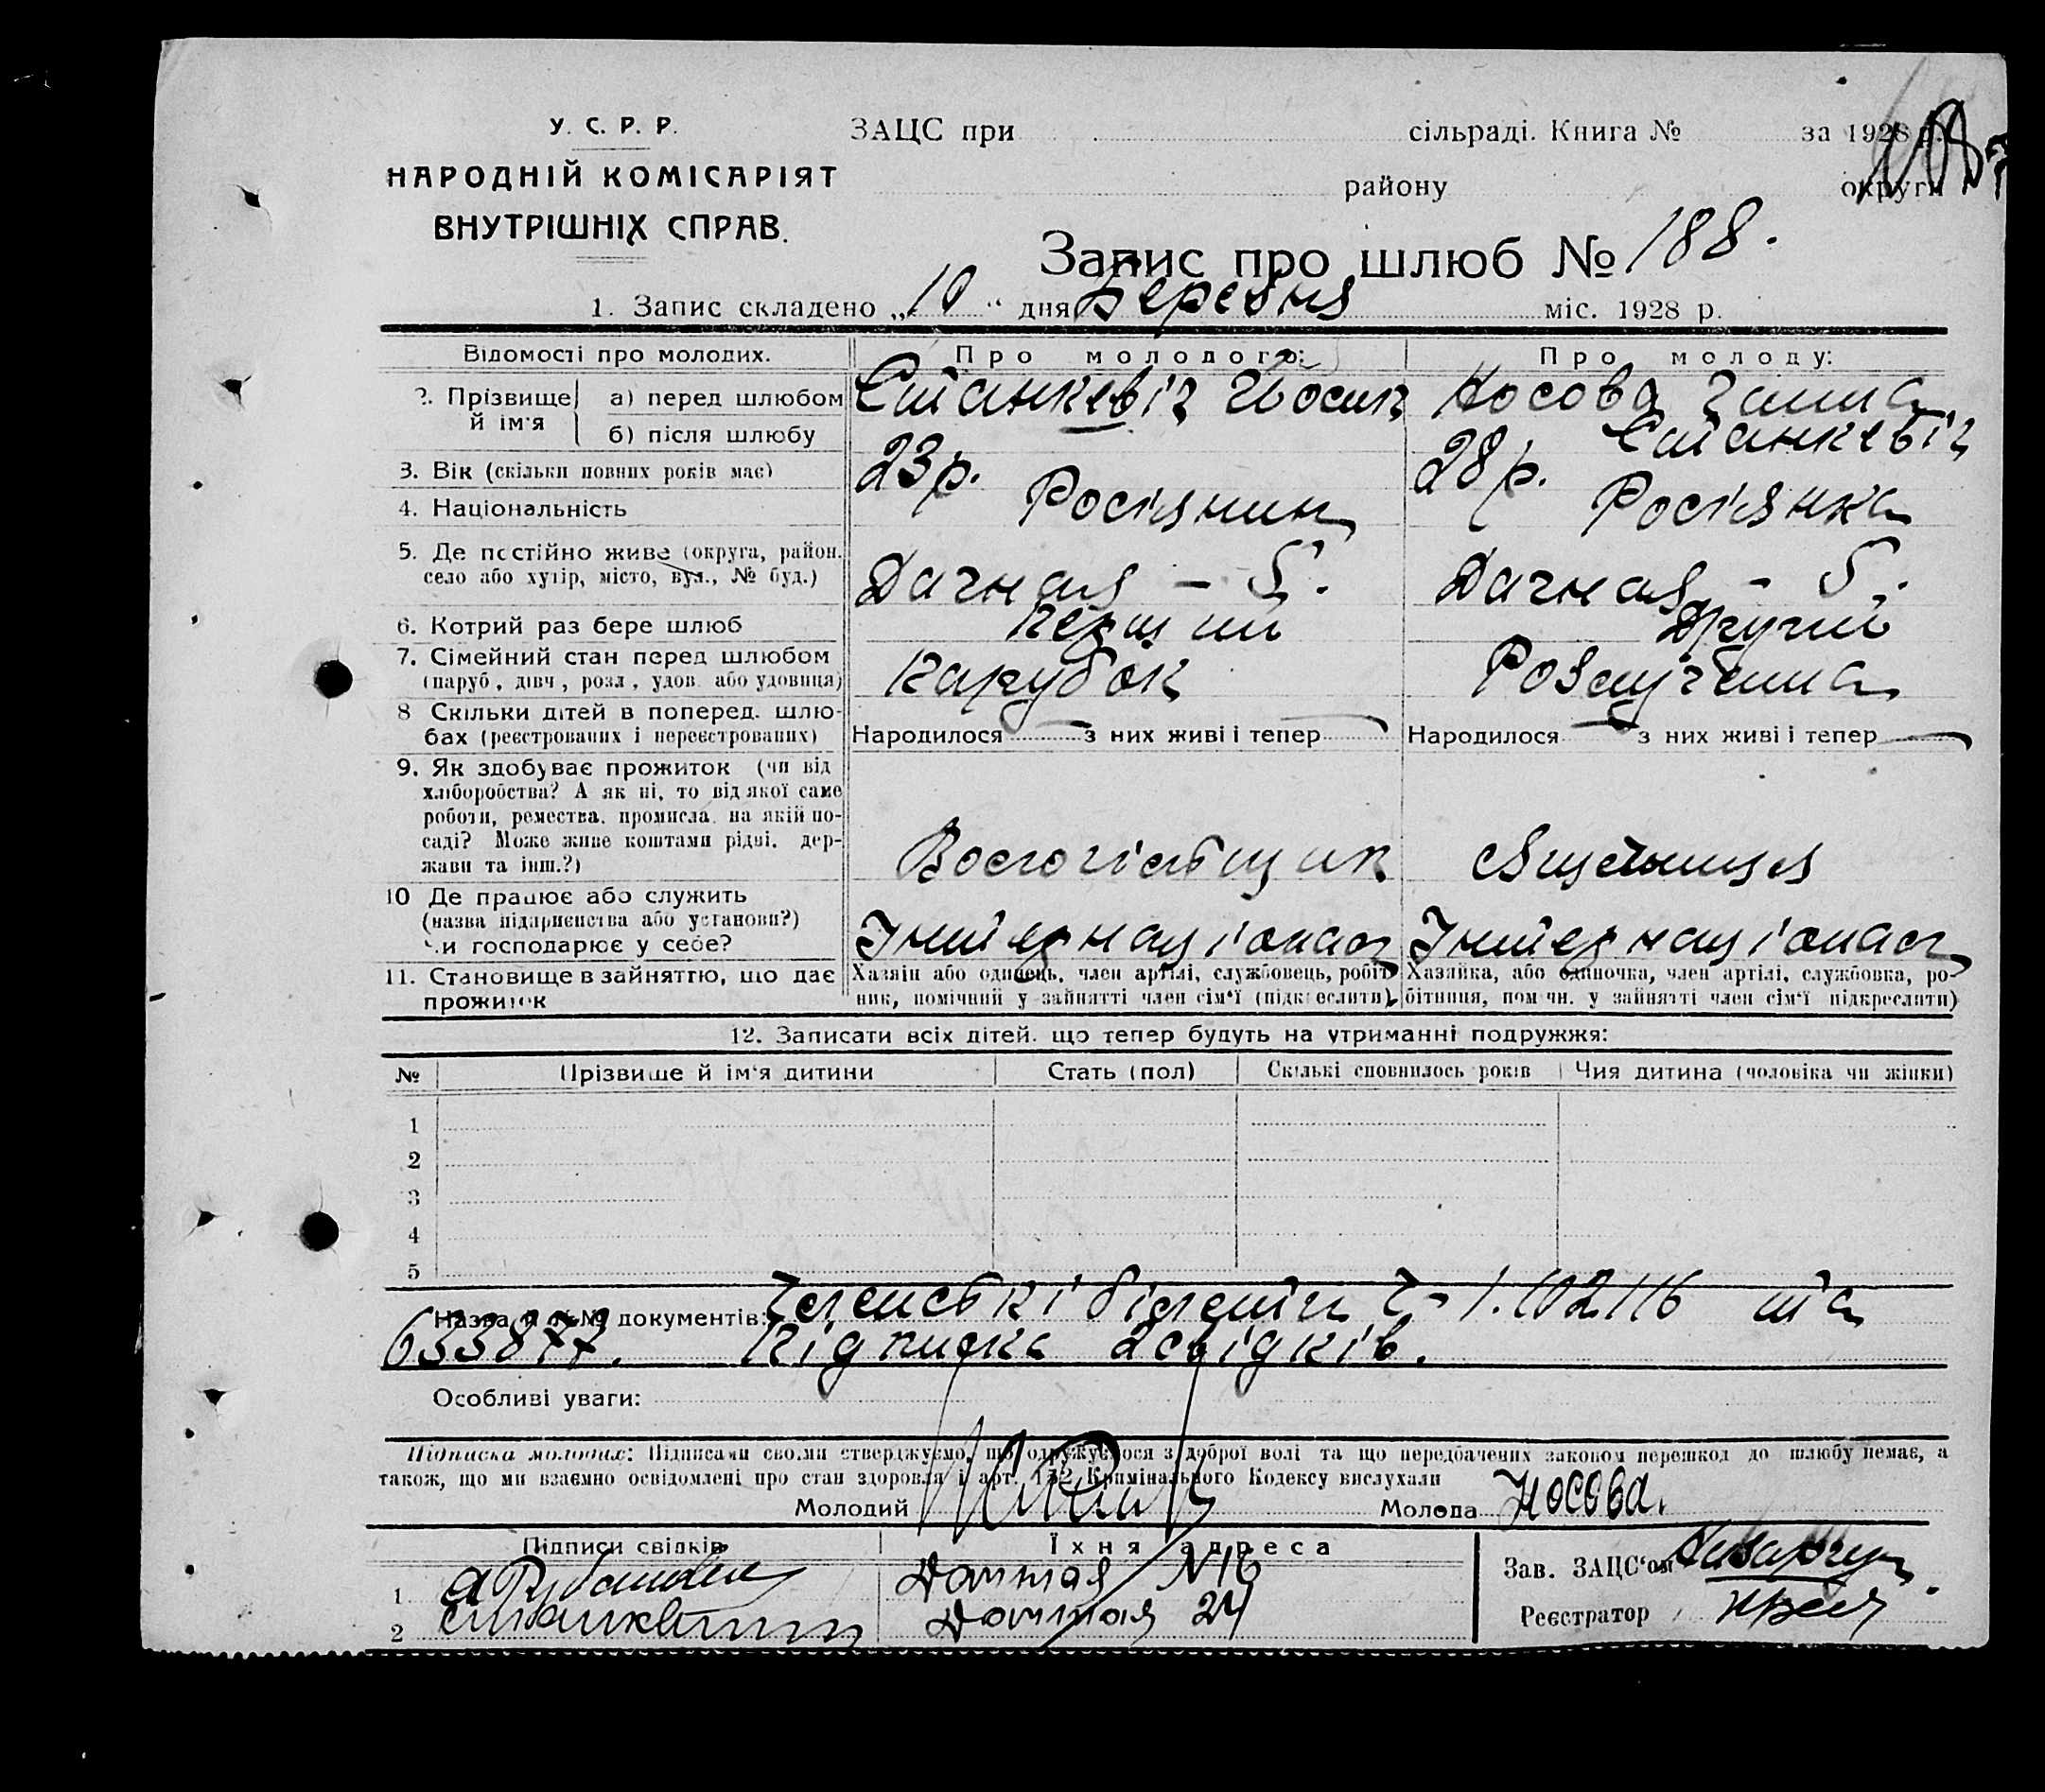 У. С. Р. Р.
НАРОДНІЙ КОМІСАРІЯТ
ВНУТРІШНІХ СПРАВ.
ЗАЦС при сільраді. Книга № за 1928 р.
району округи
Запис про шлюб № 188.
1. Запис складено „10“ дня Березня міс. 1928 р.
Відомості про молодих. Про молодого: Про молоду:
2. Прізвище й ім'я а) перед шлюбом Станкевіч Йосип Носова Ганна
б) після шлюбу Станкевіч
3. Вік (скільки повних років має) 23 р. 28 р.
4. Національність Росіянин Росіянка
5. Де постійно живе (округа, район.
село або хутір, місто, вул., № буд.) Дачная – 5. Дачная – 5.
6. Котрий раз бере шлюб Перший Другий
7. Сімейний стан перед шлюбом
(паруб., дівч., розл., удов. або удовиця) Парубок Розлучена
8 Скільки дітей в поперед. шлю-
бах (реєстрованих і нереєстрованих) Народилося з них живі і тепер Народилося з них живі і тепер
9. Як здобуває прожиток (чи від
хліборобства? А як ні, то від якої саме
роботи, ремества, промисла, на якій по-
саді? Може живе коштами рідні, дер-
жави та інш.?)
10 Де працює або служить
(назва підприємства або установи?)
Чи господарює у себе? Інтернаціонал Інтернаціонал
11. Становище в зайняттю, що дає
прожиток
Хазяїн або одинець, член артілі, службовець, робіт-
ник, помічний у зайнятті член сім'ї (підкреслити)
Хазяйка, або одиночка, член артілі, службовка, ро-
бітниця, помічн. у зайнятті член сім'ї підкреслити)
12. Записати всіх дітей, що тепер будуть на утриманні подружжя:
№ Прізвище й ім'я дитини Стать (пол) Скількі сповнилось років Чия дитина (чоловіка чи жінки)
1
2
3
4
5
Назва й № документів: Членські білети Ч– 1.102116 та
633877. Підписка свідків.
Особливі уваги:
Підписка молодих: Підписами своїми стверджуємо, що одружуємося з доброї волі та що передбачених законом перешкод до шлюбу немає, а
також, що ми взаємно освідомлені про стан здоровля і арт. 152 Кримінального Кодексу вислухали
Молодий Молода Носова.
Підписи свідків Їхня адреса
1 Дачная N16
2 Дачная 24
Зав. ЗАЦС'ом
Реєстратор